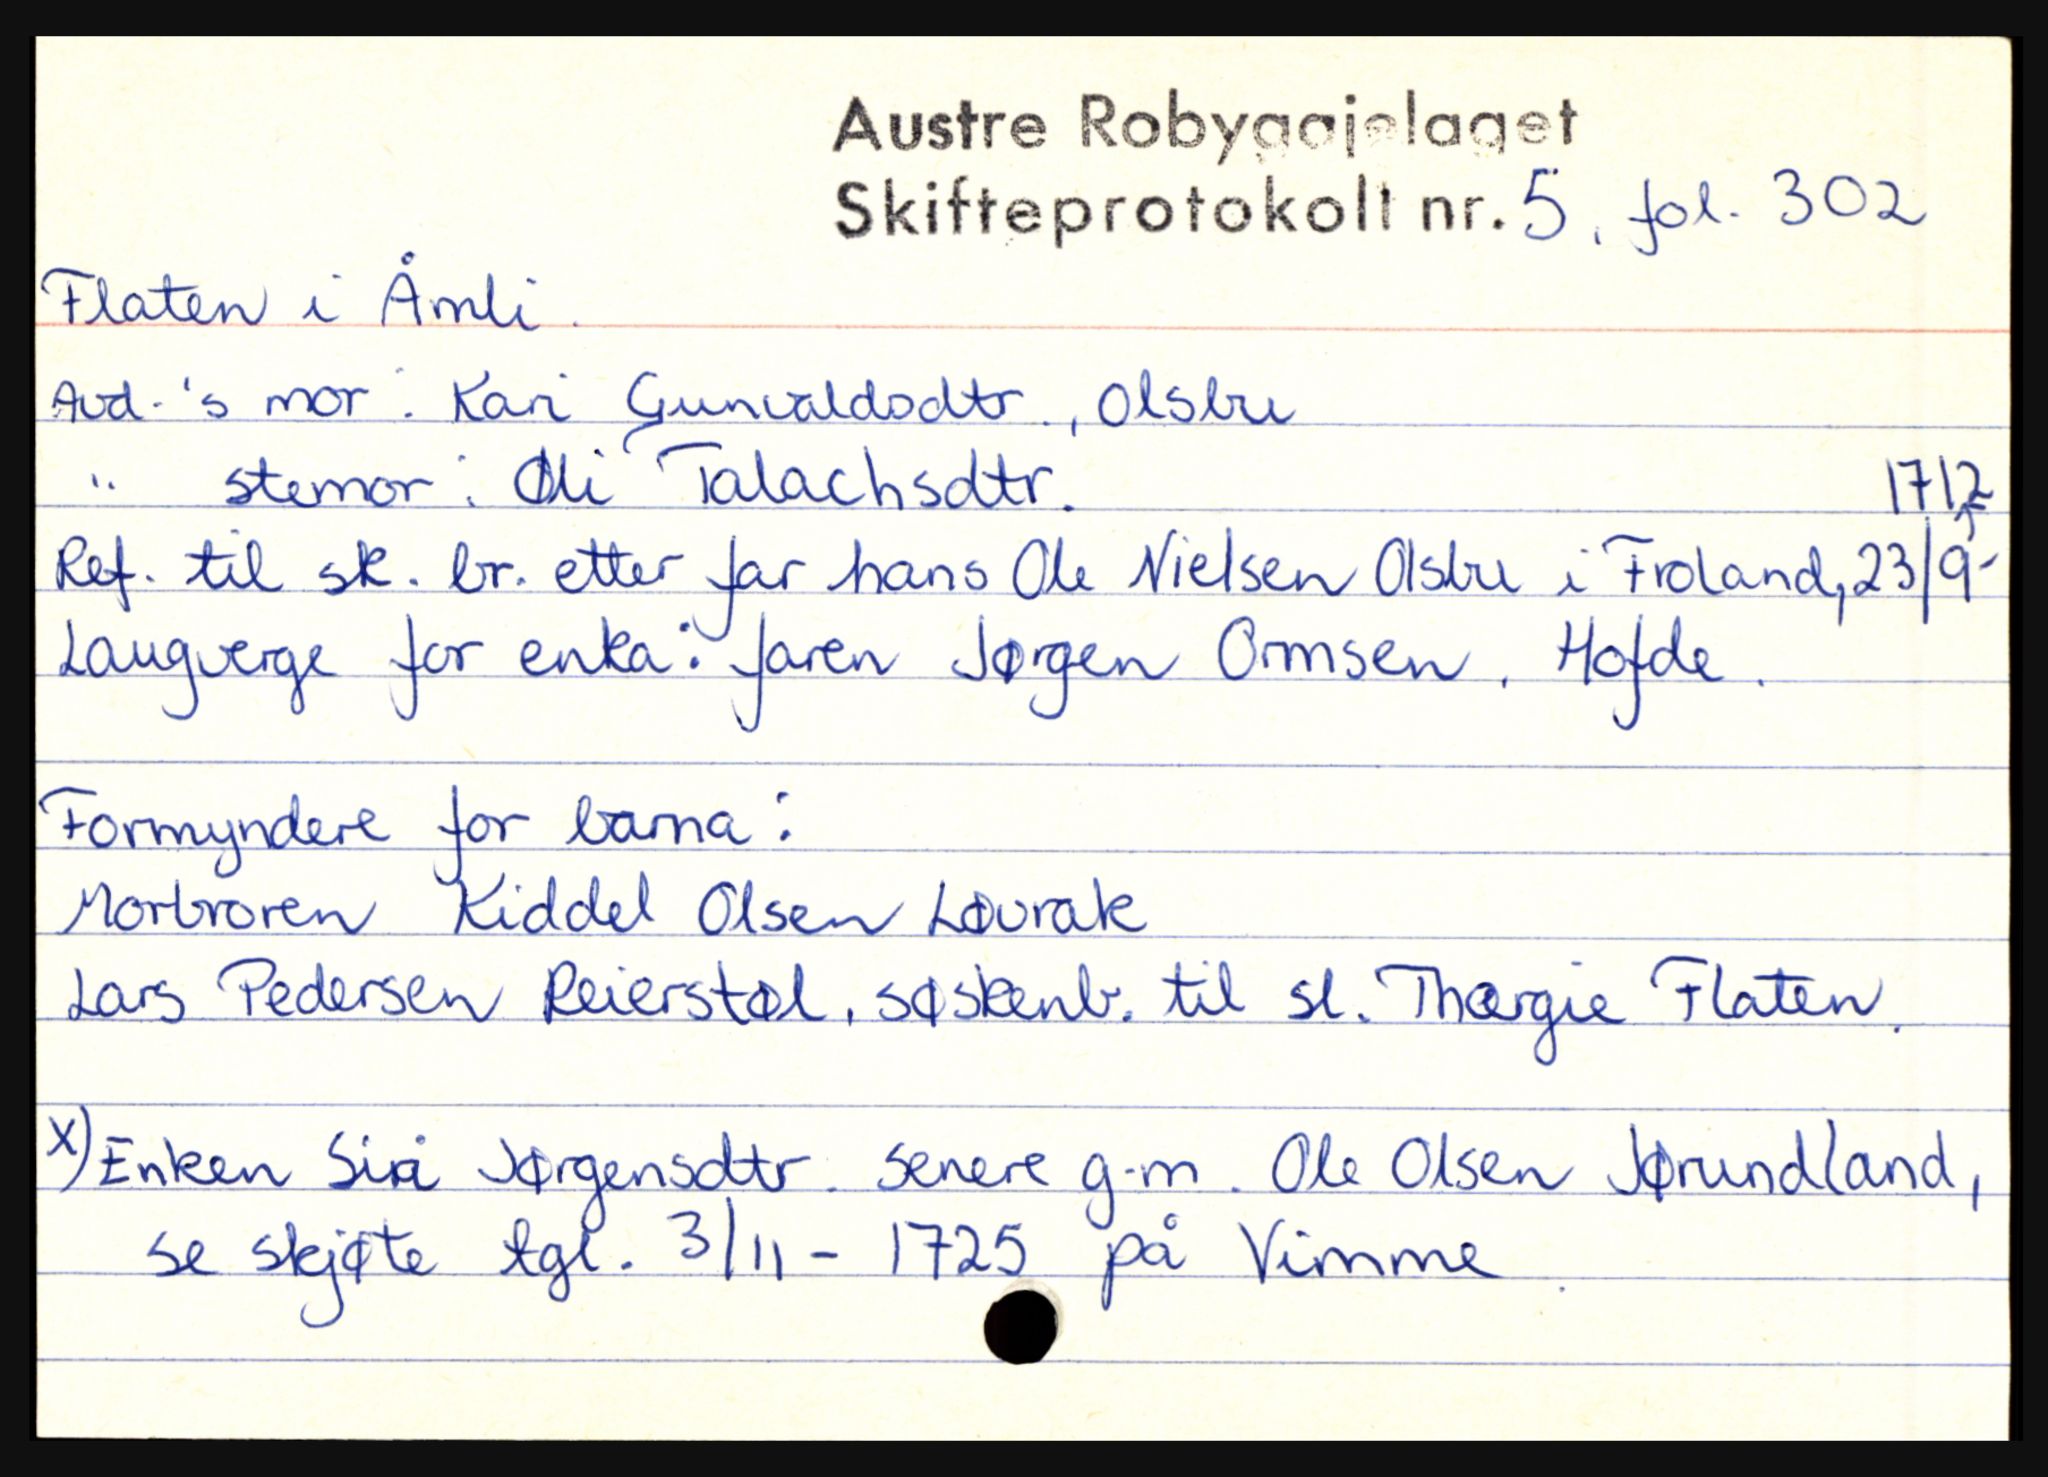 Austre Robyggjelaget
Skifteprotokoll nr. 5, fol. 302
Flaten i Åmli.
Avd.'s mor: Kari Gunvaldsdtr., Olsbu
" stemor: Øli Talachsdtr.
1712
Ref. til sk. br. etter far hans Ole Nielsen Olsbu i Froland, 23/9-
Laugverge for enka: faren Jørgen Ormsen, Hofde.
Formyndere for barna:
Morbroren Kiddel Olsen Løvrak
Lars Pedersen Reierstøl, søskenb. til sl. Thærgie Flaten.
x) Enken Siri Jørgensdtr. senere g.m. Ole Olsen Jørundland,
se skjøte tgl. 3/11 - 1725 på Vimme.